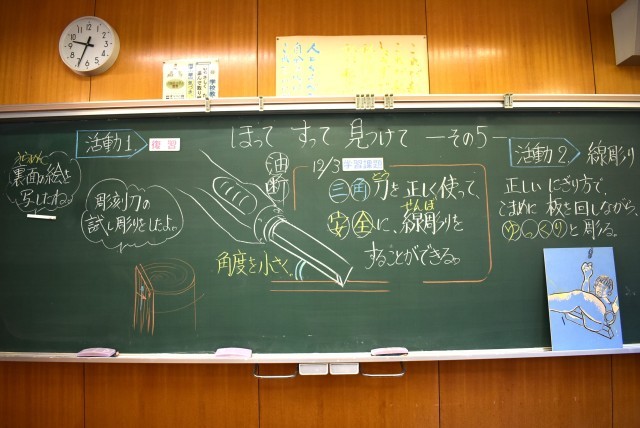 活動1
復習
ほって すって 見つけて ーその5ー
活動2.
線彫り
裏面の絵を
写したね。
彫刻刀の
試し彫りをしたよ。
油
断
角度を小さく。
12/3 学習課題
とう
三角刀を正しく使って、
せんぼ
安全に、線彫りを
することができる。
正しいにぎり方で、
こまめに板を回しながら、
ゆっくりと彫る。